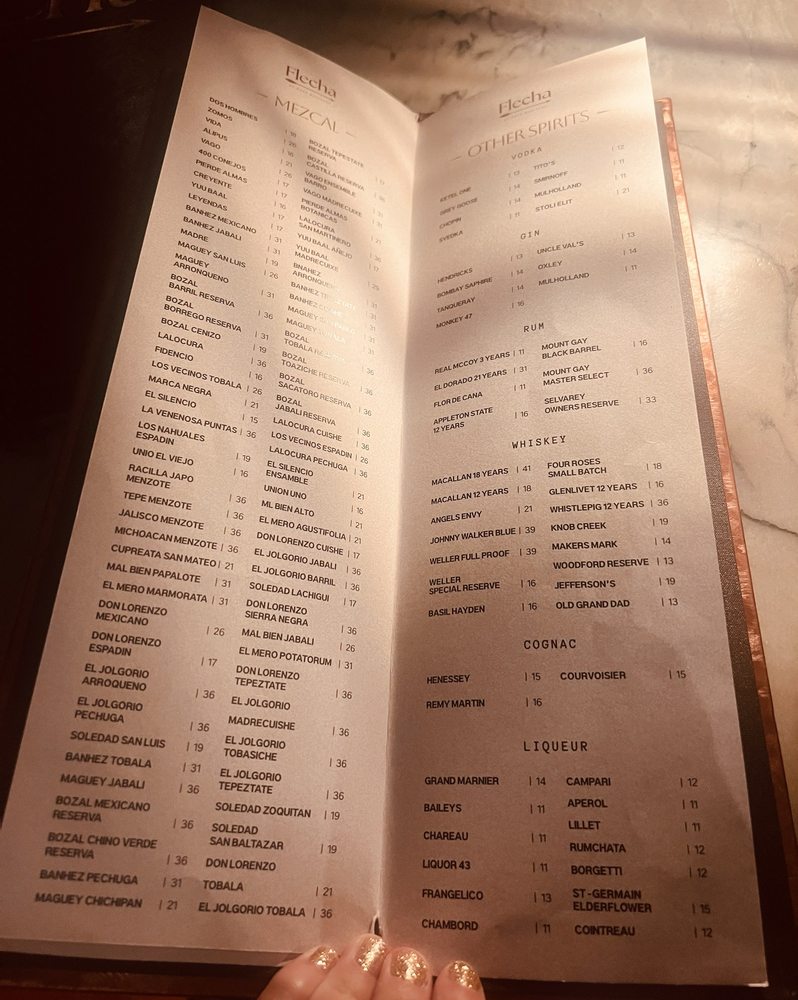 Flecha
MEZCAL
DOS HOMBRES | 18
ZOMOS | 26
VIDA | 16
ALIPUS | 21
VAGO | 26
400 CONEJOS | 17
PIERDE ALMAS
CREYENTE
YUU BAAL
LEYENDAS
BANHEZ MEXICANO
BANHEZ JABALI | 31
MADRE
MAGUEY SAN LUIS | 19
MAGUEY
ARRONQUENO | 26
BOZAL
BARRIL RESERVA | 31
BOZAL
BORREGO RESERVA | 36
BOZAL CENIZO | 31
LALOCURA | 19
FIDENCIO | 36
LOS VECINOS TOBALA | 26
MARCA NEGRA | 21
EL SILENCIO | 15
LA VENENOSA PUNTAS | 36
LOS NAHUALES
ESPADIN | 19
UNIO EL VIEJO | 16
RACILLA JAPO
MENZOTE | 36
TEPE MENZOTE | 36
JALISCO MENZOTE | 36
MICHOACAN MENZOTE | 36
CUPREATA SAN MATEO | 21
MAL BIEN PAPALOTE | 31
EL MERO MARMORATA | 31
DON LORENZO
MEXICANO | 26
DON LORENZO
ESPADIN | 17
EL JOLGORIO
ARROQUENO | 36
EL JOLGORIO
PECHUGA | 36
SOLEDAD SAN LUIS | 19
BANHEZ TOBALA | 31
MAGUEY JABALI | 36
BOZAL MEXICANO
RESERVA | 36
BOZAL CHINO VERDE
RESERVA | 36
BANHEZ PECHUGA | 31
MAGUEY CHICHIPAN | 21
BOZAL TEPESTATE
RESERVA
BOZAL
CASTILLA RESERVA
VAGO ENSEMBLE
BARRO
VAGO MADRECUIXE
PIERDE ALMAS
BOTANICAS
LALOCURA
SAN MARTINERO
YUU BAAL AÑEJO
YUU BAAL
MADRECUIXE
BNAHEZ
BANHEZ
BANHEZ
MAGUEY
MAGUEY
BOZAL
TOBALA
BOZAL
TOAZICHE RESERVA | 36
BOZAL
SACATORO RESERVA | 36
BOZAL
JABALI RESERVA | 36
LALOCURA CUISHE | 36
LOS VECINOS ESPADIN | 26
LALOCURA PECHUGA | 36
EL SILENCIO
ENSAMBLE | 21
UNION UNO | 16
ML BIEN ALTO | 21
EL MERO AGUSTIFOLIA | 21
DON LORENZO CUISHE | 17
EL JOLGORIO JABALI | 36
EL JOLGORIO BARRIL | 36
SOLEDAD LACHIGUI | 17
DON LORENZO
SIERRA NEGRA | 36
MAL BIEN JABALI | 26
EL MERO POTATORUM | 31
DON LORENZO
TEPEZTATE | 36
EL JOLGORIO
MADRECUISHE | 36
EL JOLGORIO
TOBASICHE | 36
EL JOLGORIO
TEPEZTATE | 36
SOLEDAD ZOQUITAN | 19
SOLEDAD
SAN BALTAZAR | 19
DON LORENZO
TOBALA | 21
EL JOLGORIO TOBALA | 36
Flecha
OTHER SPIRITS
VODKA
KETEL ONE | 13
GREY GOOSE | 14
CHOPIN | 14
SVEDKA | 11
TITO'S | 12
SMIRNOFF | 11
MULHOLLAND | 11
STOLI ELIT | 21
GIN
HENDRICKS | 13
BOMBAY SAPHIRE | 14
TANQUERAY | 14
MONKEY 47 | 16
UNCLE VAL'S | 13
OXLEY | 14
MULHOLLAND | 11
RUM
REAL MCCOY 3 YEARS | 11
EL DORADO 21 YEARS | 31
FLOR DE CANA | 11
APPLETON STATE
12 YEARS | 16
MOUNT GAY
BLACK BARREL | 16
MOUNT GAY
MASTER SELECT | 36
SELVAREY
OWNERS RESERVE | 33
WHISKEY
MACALLAN 18 YEARS | 41
MACALLAN 12 YEARS | 18
ANGELS ENVY | 21
JOHNNY WALKER BLUE | 39
WELLER FULL PROOF | 39
WELLER
SPECIAL RESERVE | 16
BASIL HAYDEN | 16
FOUR ROSES
SMALL BATCH | 18
GLENLIVET 12 YEARS | 16
WHISTLEPIG 12 YEARS | 36
KNOB CREEK | 19
MAKERS MARK | 14
WOODFORD RESERVE | 13
JEFFERSON'S | 19
OLD GRAND DAD | 13
COGNAC
HENESSEY | 15
REMY MARTIN | 16
COURVOISIER | 15
LIQUEUR
GRAND MARNIER | 14
BAILEYS | 11
CHAREAU | 11
LIQUOR 43 | 11
FRANGELICO | 13
CHAMBORD | 11
CAMPARI | 12
APEROL | 11
LILLET | 11
RUMCHATA | 12
BORGETTI | 12
ST-GERMAIN
ELDERFLOWER | 15
COINTREAU | 12